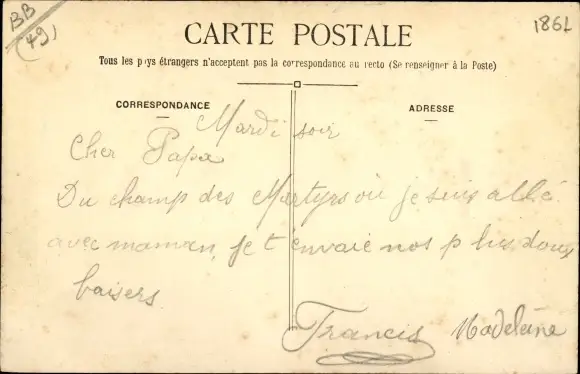 BB
(79)
186L
CARTE POSTALE
Tous les pays étrangers n'acceptent pas la correspondance au recto (Se renseigner à la Poste)
CORRESPONDANCE
ADRESSE
Mardi soir
Cher Papa
Du champ des Martyrs où je suis allé
avec maman, je t'envoie nos plus doux
baisers
Francis Madeleine